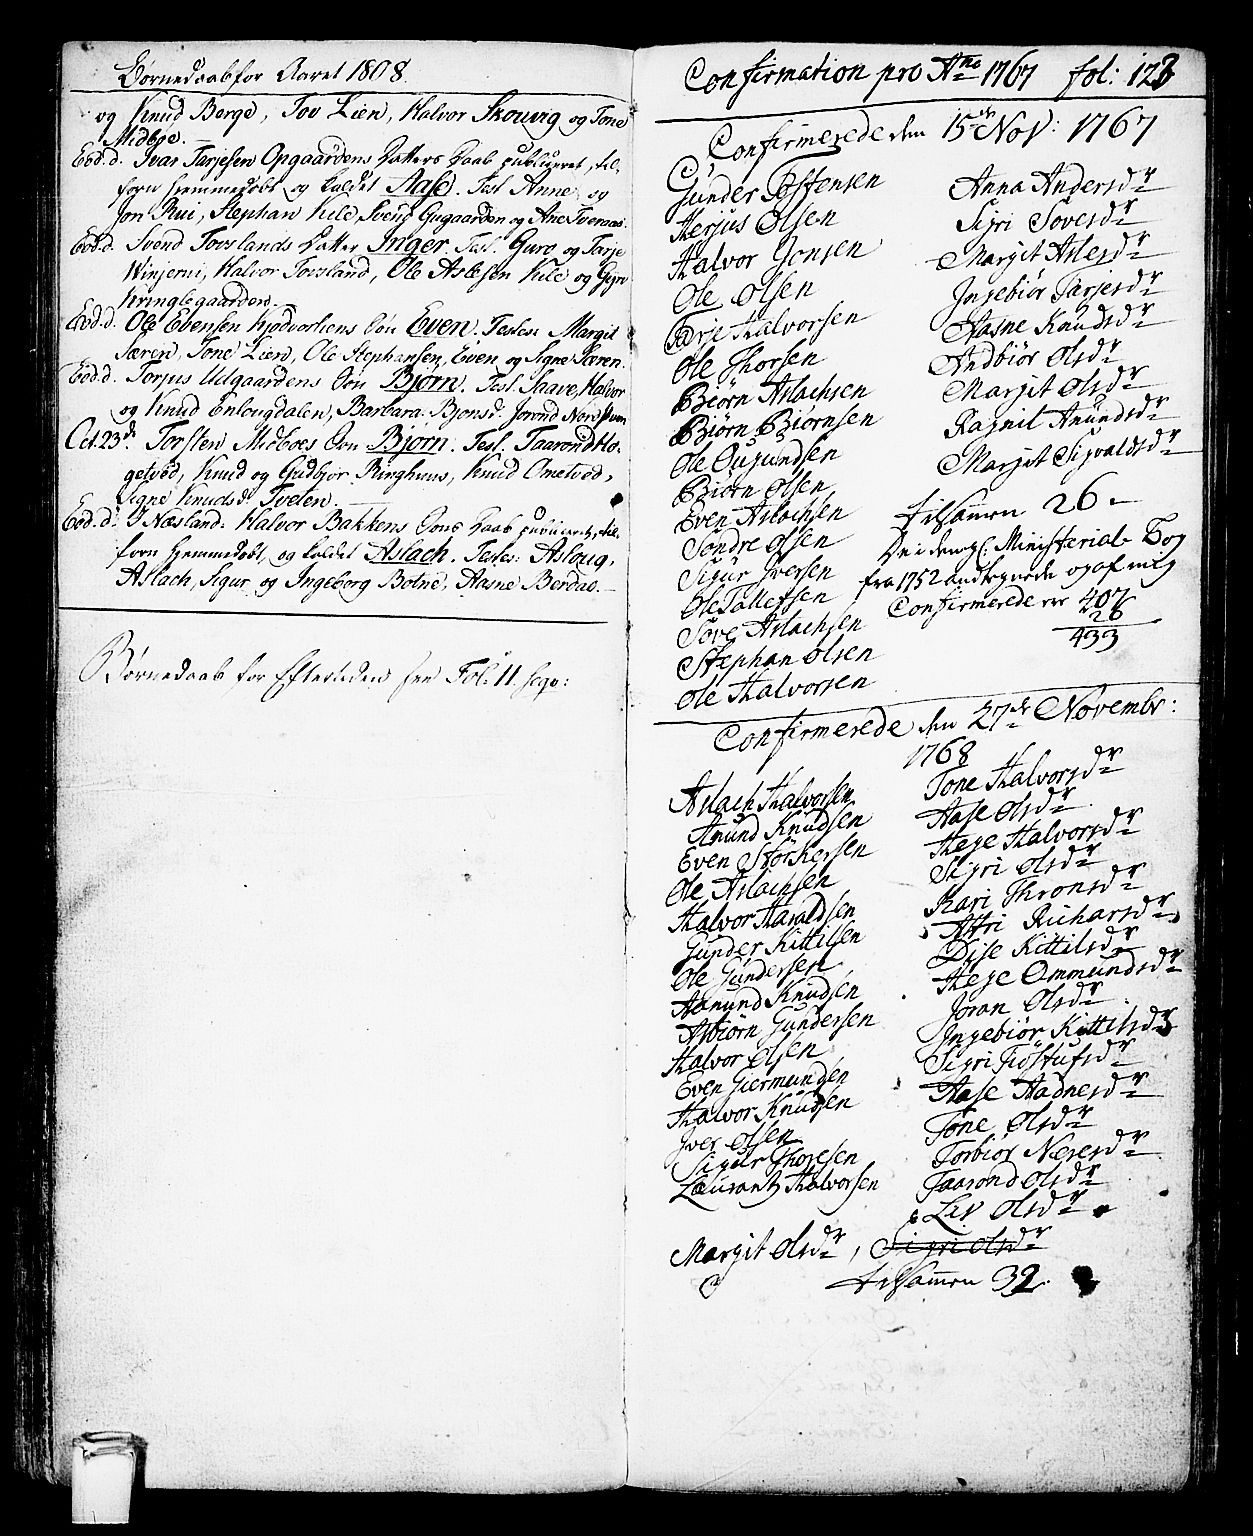 Børnedaab for Aaret 1808.
og Knud Berge, Tov Lien, Halvor Skouvig og Tone
Midbøe.
Eod. d. Ivar Tarjesen Opgaardens Datters Daab publiceret, til-
forn hjemmedøbt og kaldet Aase. Test. Anne og
Jon Rui, Stephan Kile, Svend Gugaarden og Ane Tveraas.
Eod. d. Svend Tovslands Datter Inger. Test. Guro og Tarje
Winjerui, Halvor Tovsland, Ole Aslesen Kile og Gyro
Kringlegaarden.
Eod. d. Ole Evensen Kjødvorliens Søn Even. Testes: Margit
Særen, Tone Lien, Ole Stephansen, Even og Signe Særen.
Eod. d. Torjus Udgaardens Søn Bjørn. Test. Saave, Halvor
og Knud Enlougdalen, Barbara Bjønsd. Jorond
Oct. 23de Torsten Midboes Søn Bjørn. Test. Taarond Ho-
getved, Knud og Gudbjør Ringhuus, Knud Ometved,
Signe Knudsdr Tveten.
Eod. d. I Næsland: Halvor Bakkens Søns Daab publiceret, til-
forn hjemmedøbt, og kaldet Aslach. Testes: Asloug,
Aslach, Sigur og Ingeborg Bolne, Aasne Berdal.
Børnedaab for Eftertiden see Fol: 11. seqv:
Confirmation pro Ano 1767 fol: 123
Confirmerede den 15de Nov: 1767
Gunder Tostensen
Herjus Olsen
Halvor Jonsen
Ole Olsen
Tarje Halvorsen
Ole Thorsen
Biørn Aslachsen
Biørn Biørnsen
Ole Ougundsen
Biørn Olsen
Even Aslachsen
Sondre Olsen
Sigur Iversen
Ole Tallefsen
Sove Aslachsen
Stephan Olsen
Ole Halvorsen
Anna Andersdr
Sigri Sovesdr
Margit Aslesdr
Ingebiør Tarjesdr
Aasne Knudsdr
Andbiør Olsdr
Margit Olsdr
Ragnil Anundsdr
Margit Sigvaldsdr
Tilsamen 26
De i den gl: Ministerial-Bog
fra 1752 andtegnede og af mig
Confirmerede er 407
26
433
Confirmerede den 27de Novembr:
1768
Aslach Halvorsen
Anund Knudsen
Even Størkersen
Ole Aslachsen
Halvor Haraldsen
Gunder Kittilsen
Ole Gundersen
Aanund Knudsen
Asbiørn Gundersen
Halvor Olsen
Even Giermundsen
Halvor Knudsen
Iver Olsen
Sigur Thoresen
Laurantz Halvorsen
Tone Halvorsdr
Aase Olsdr
Hege Halvorsdr
Sigri Olsdr
Kari Thronsdr
Affri Richarsdr
Dise Kittilsdr
Hege Ommundsdr
Joran Olsdr
Ingebiør Kittilsdr
Sigri Tiøstufsdr
Aase Aadnesdr
Tone Olsdr
Torbiør Neresdr
Taarond Olsdr
Liv Olsdr
Margit Olsdr, Sigri Olsdr
Tilsamen 32.